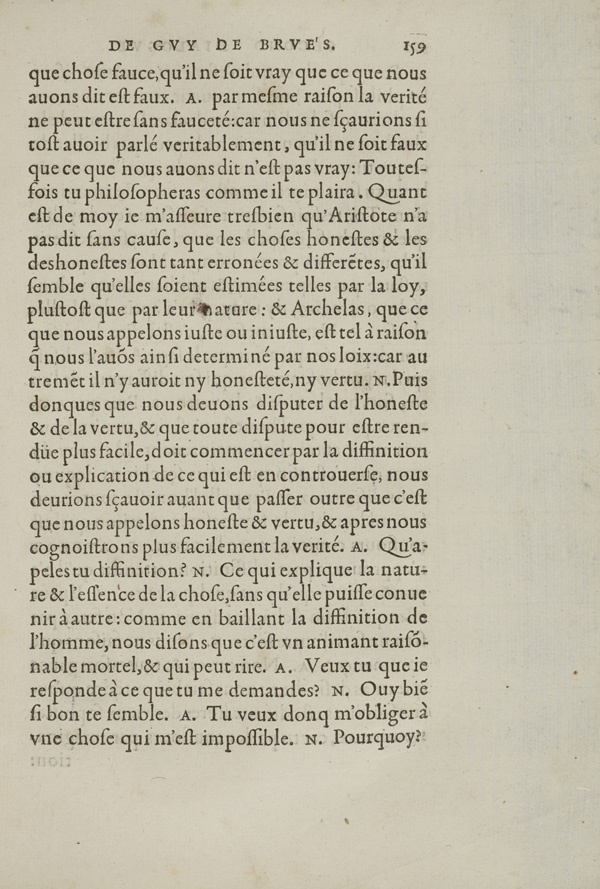 DE GVY DE BRVE'S. 159
que choſe fauce, qu'il ne ſoit vray que ce que nous
auons dit eſt faux. A. par meſme raiſon la verité
ne peut eſtre ſans fauceté: car nous ne ſçaurions ſi
toſt auoir parlé veritablement, qu'il ne ſoit faux
que ce que nous auons dit n'eſt pas vray: Touteſ-
fois tu philoſopheras comme il te plaira. Quant
eſt de moy ie m'aſſeure treſbien qu'Ariſtote n'a
pas dit ſans cauſe, que les choſes honeſtes & les
deshoneſtes ſont tant erronées & differētes, qu'il
ſemble qu'elles ſoient eſtimées telles par la loy,
pluſtoſt que par leur nature: & Archelas, que ce
que nous appelons iuſte ou iniuſte, eſt tel à raiſon
q̃ nous l'auōs ainſi determiné par nos loix: car au
tremēt il n'y auroit ny honeſteté, ny vertu. N. Puis
donques que nous deuons diſputer de l'honeſte
& de la vertu, & que toute diſpute pour eſtre ren-
düe plus facile, doit commencer par la diffinition
ou explication de ce qui eſt en controuerſe, nous
deurions ſçauoir auant que paſſer outre que c'eſt
que nous appelons honeſte & vertu, & apres nous
cognoiſtrons plus facilement la verité. A. Qu'a-
peles tu diffinition? N. Ce qui explique la natu-
re & l'eſſence de la choſe, ſans qu'elle puiſſe conue
nir à autre: comme en baillant la diffinition de
l'homme, nous diſons que c'eſt vn animant raiſō-
nable mortel, & qui peut rire. A. Veux tu que ie
reſponde à ce que tu me demandes? N. Ouy biē
ſi bon te ſemble. A. Tu veux donq m'obliger à
vne choſe qui m'eſt impoſſible. N. Pourquoy?